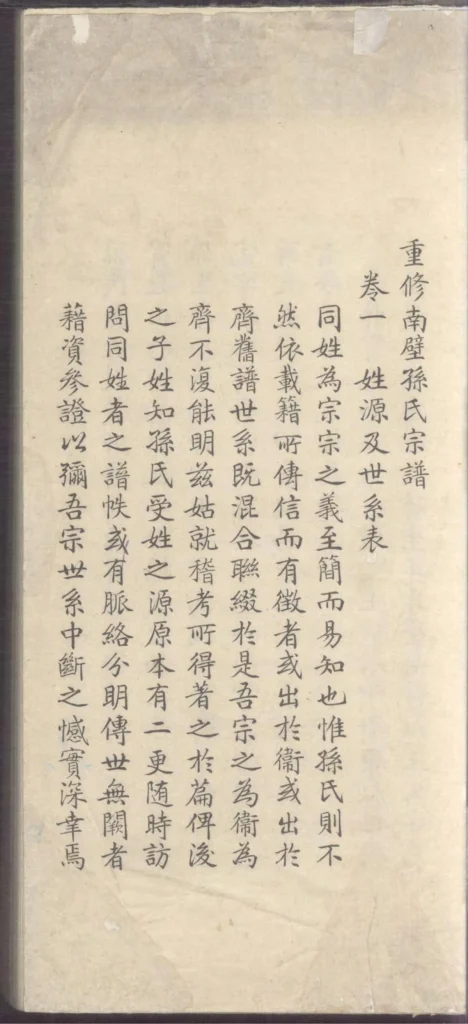 重修南壁孫氏宗譜
卷一 姓源及世系表
同姓為宗宗之義至簡而易知也惟孫氏則不
然依載籍所傳信而有徵者或出於衞或出於
齊舊譜世系既混合聯綴於是吾宗之為衞為
齊不復能明茲姑就稽考所得著之於篇俾後
之子姓知孫氏受姓之源原本有二更随時訪
問同姓者之譜帙或有脈絡分明傳世無闕者
藉資參證以彌吾宗世系中斷之憾實深幸焉